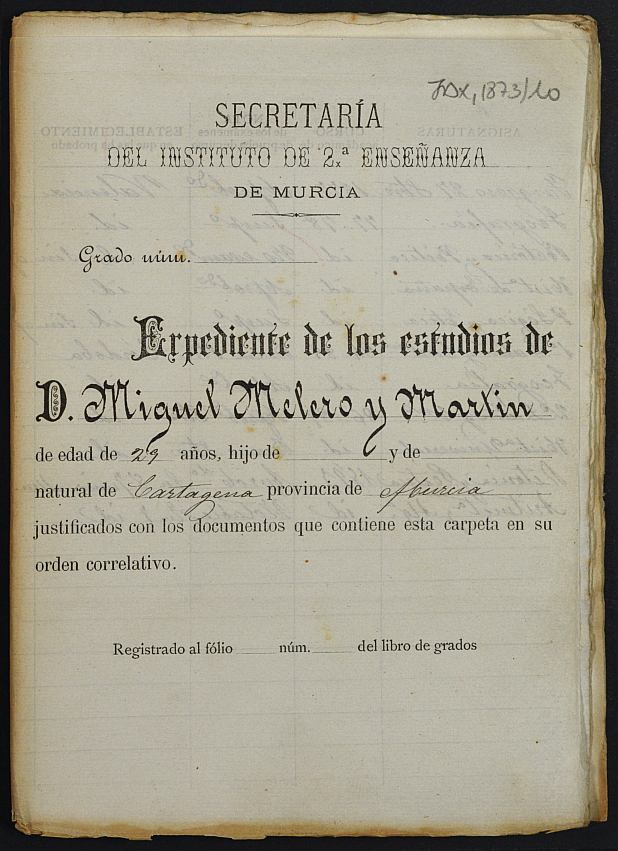 JDX, 1873/10
SECRETARÍA
DEL INSTITUTO DE 2.ª ENSEÑANZA
DE MURCIA
Grado núm.
Expediente de los estudios de
D. Miguel Melero y Martin
de edad de 29 años, hijo de y de
natural de Cartagena provincia de Murcia
justificados con los documentos que contiene esta carpeta en su
orden correlativo.
Registrado al fólio núm. del libro de grados